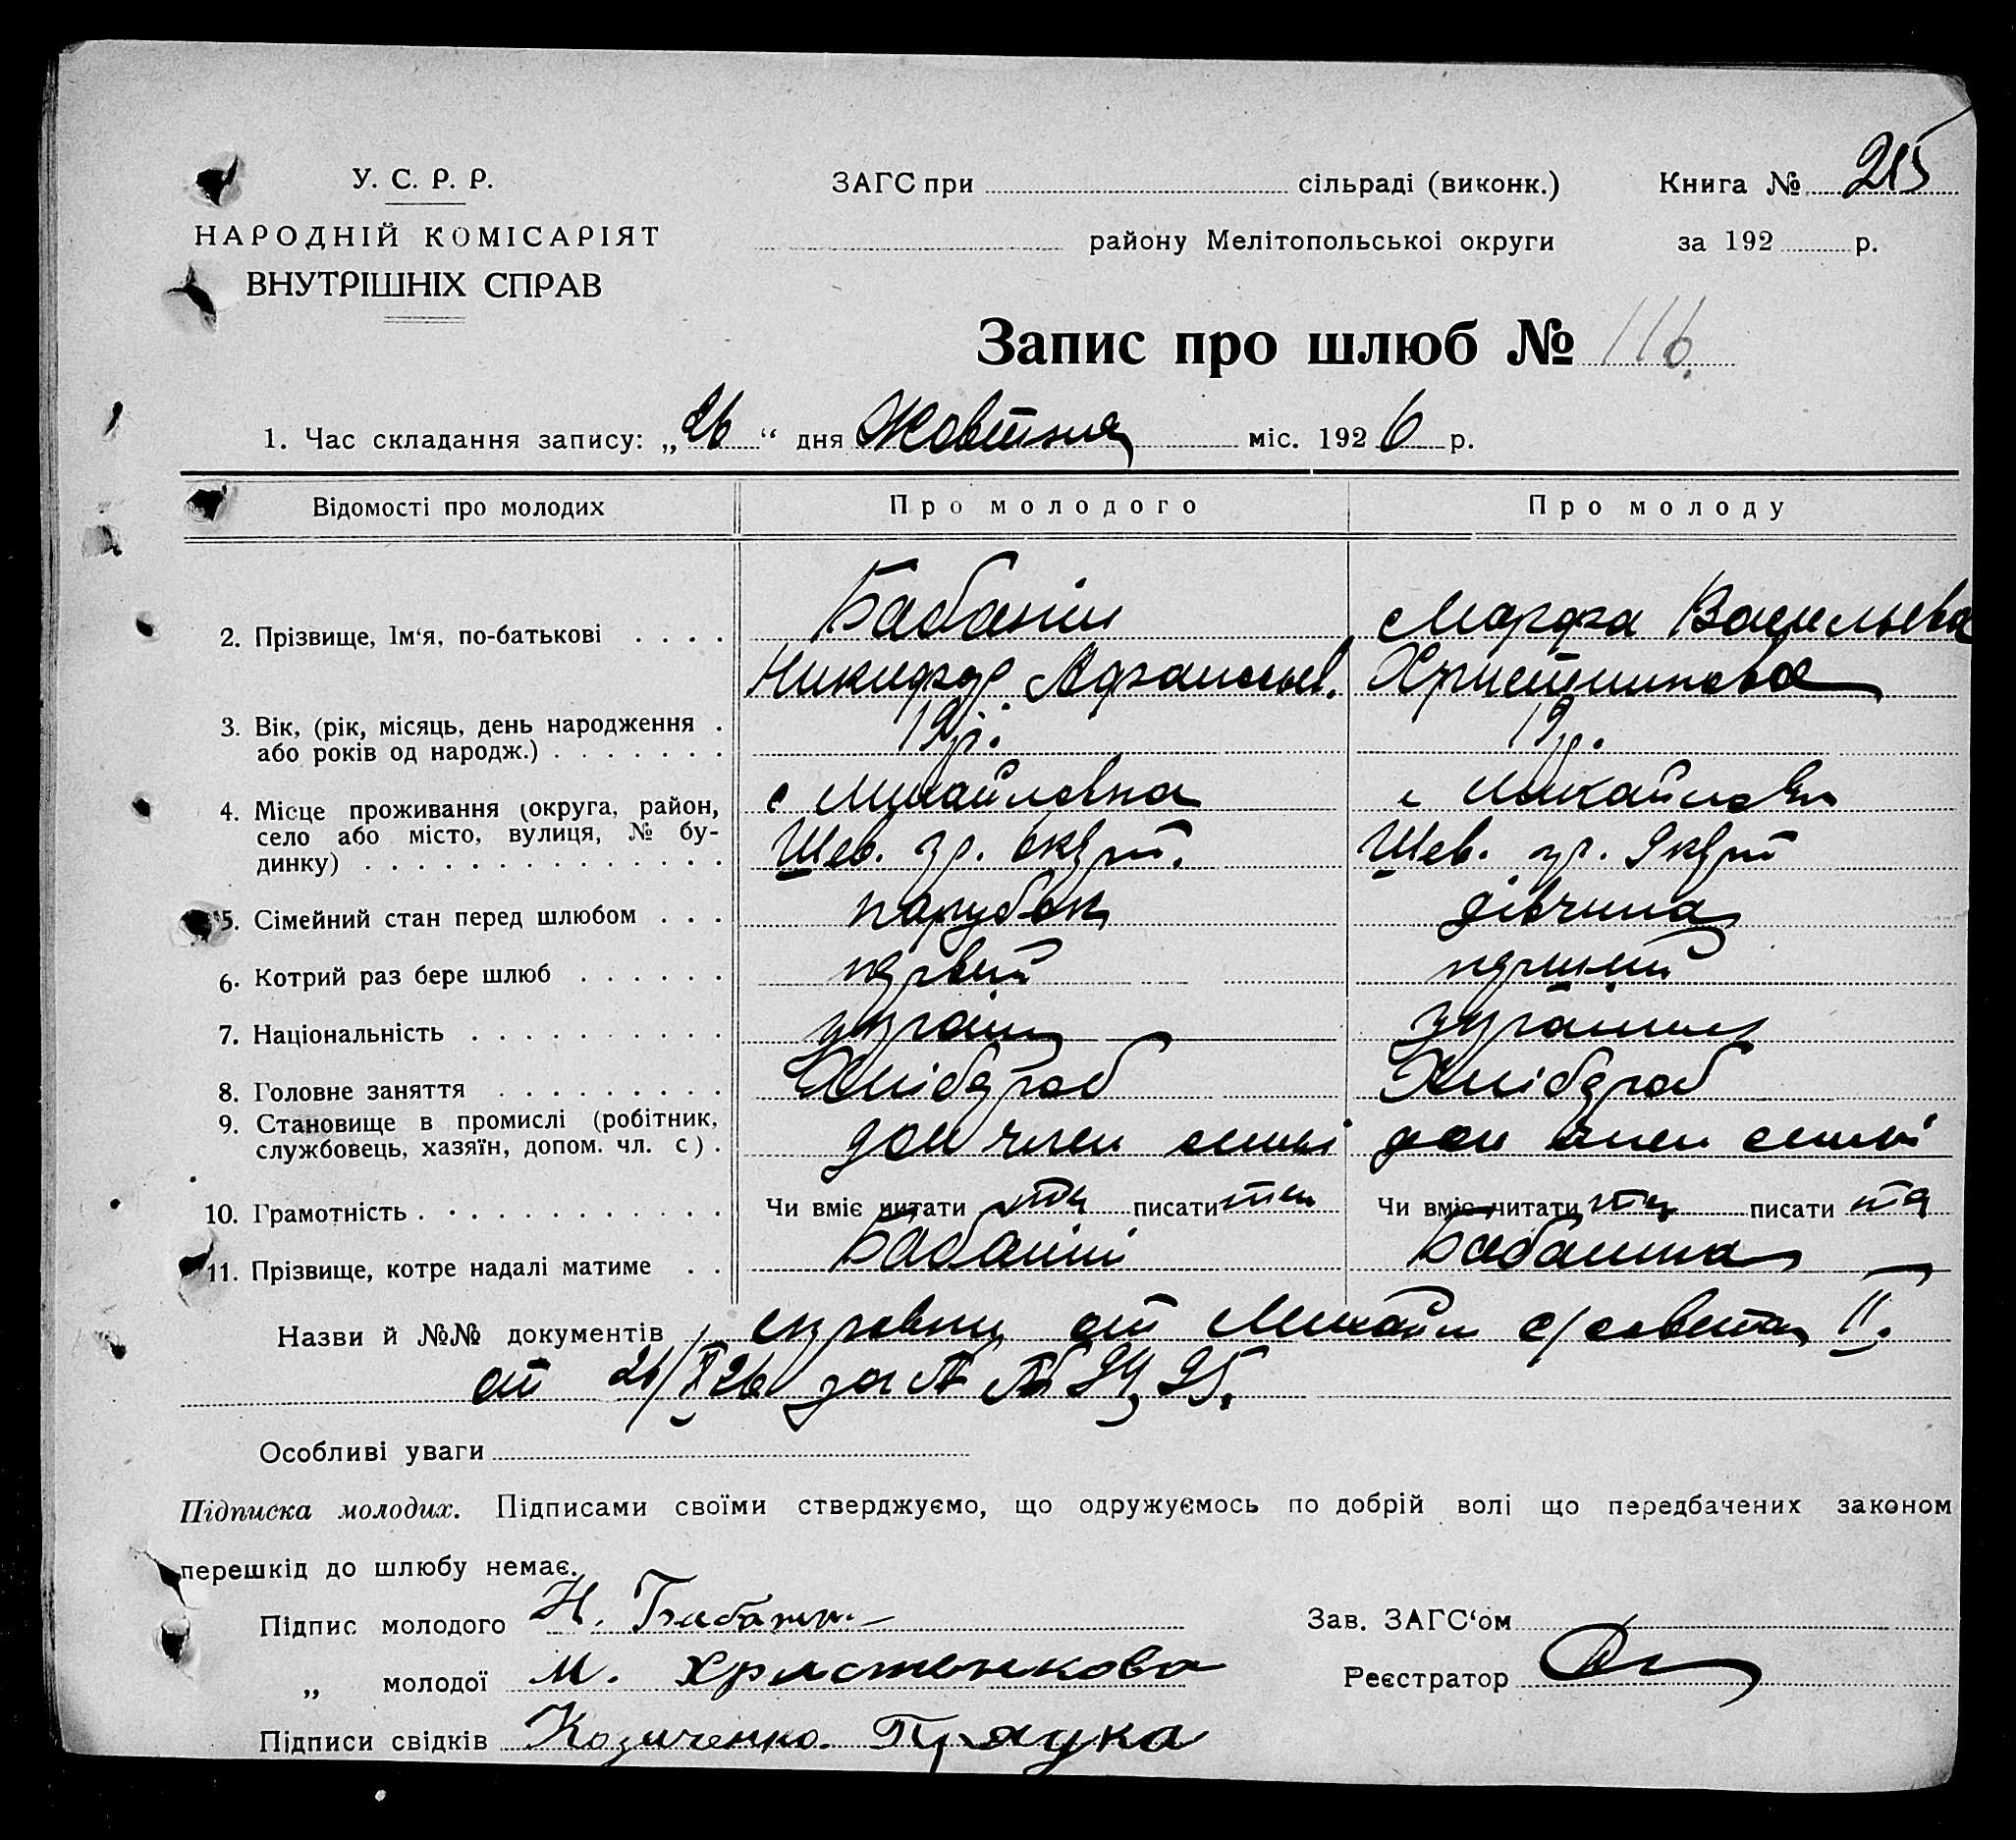 У. С. Р. Р.
НАРОДНІЙ КОМІСАРІЯТ
ВНУТРІШНІХ СПРАВ
ЗАГС при сільраді (виконк.)
району Мелітопольської округи
Книга № 215
за 192 р.
Запис про шлюб № 116
1. Час складання запису: „26“ дня Жовтня міс. 1926 р.
Відомості про молодих Про молодого Про молоду
2. Прізвище, Ім'я, по-батькові Бабанін Марфа Васильева
Никифор Афанасьев. Христинкова
3. Вік, (рік, місяць, день народження 19 р. 19 р.
або років од народж.)
4. Місце проживання (округа, район, с Михайловка с Михайловка
село або місто, вулиця, № бу-
динку) Шев. гр.
5. Сімейний стан перед шлюбом парубок дівчина
6. Котрий раз бере шлюб первий перший
7. Національність україн
8. Головне заняття Хлібороб Хлібороб
9. Становище в промислі (робітник,
службовець, хазяїн, допом. чл. с) доп член семьі доп член семьі
10. Грамотність Чи вміє читати писати Чи вміє читати писати
11. Прізвище, котре надалі матиме Бабанін Бабанина
Назви й №№ документів справки от Михайл с/совета II.
от 26/X 26 за № № 94, 95.
Особливі уваги
Підписка молодих. Підписами своїми стверджуємо, що одружуємось по добрій волі що передбачених законом
перешкід до шлюбу немає.
Підпис молодого Н. Бабанин
„ молодої М. Христенкова
Підписи свідків Козиченко.
Зав. ЗАГС'ом
Реєстратор